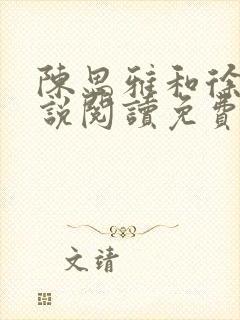 陳思雅和徐
說閱讀免費
文靖